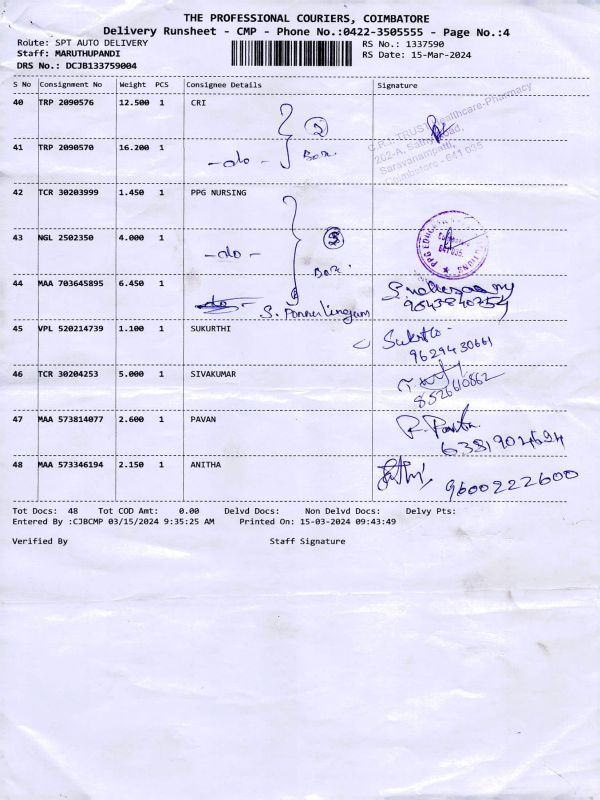 THE PROFESSIONAL COURIERS, COIMBATORE
Delivery Runsheet - CMP - Phone No.:0422-3505555 - Page No.:4
Route: SPT AUTO DELIVERY
RS No.: 1337590
Staff: MARUTHUPANDI
RS Date: 15-Mar-2024
DRS No.: DCJB133759004
S No Consignment No Weight PCS Consignee Details Signature
40 TRP 2090576 12.500 1 CRI
C.R.I. TRUST Healthcare-Pharmacy
202-A, Sathy Road,
Saravanampatti,
Coimbatore - 641 035
2
41 TRP 2090570 16.200 1 -do- Box.
42 TCR 30203999 1.450 1 PPG NURSING
43 NGL 2502350 4.000 1 -do- Box.
PPG
641 035
44 MAA 703645895 6.450 1 -do-
S. Ponnulingam
45 VPL 520214739 1.100 1 SUKURTHI
9629430661
46 TCR 30204253 5.000 1 SIVAKUMAR
8526610862
47 MAA 573814077 2.600 1 PAVAN
6381904694
48 MAA 573346194 2.150 1 ANITHA
9600222600
Tot Docs: 48 Tot COD Amt: 0.00 Delvd Docs: Non Delvd Docs: Delvy Pts:
Entered By :CJBCMP 03/15/2024 9:35:25 AM Printed On: 15-03-2024 09:43:49
Verified By Staff Signature